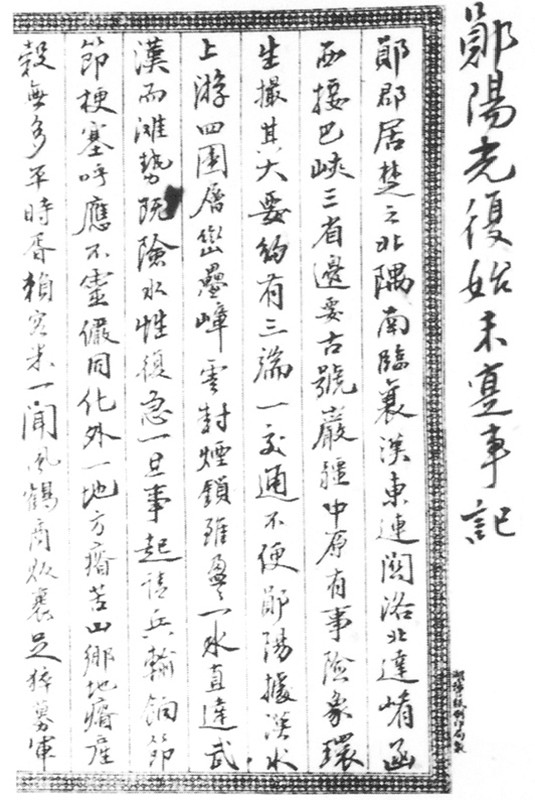 鄖陽光復始末寔事記
鄖郡居楚之北隅南臨襄漢東連關洛北達崤函
西接巴峽三省邊要古號巖疆中原有事險象環
生撮其大要約有三端一交通不便鄖陽據漢水
上游四圍層巒疊嶂雲封煙鎖雖盈々一水直達武
漢而灘勢既險水性復急一旦事起請兵輸餉節
節梗塞呼應不靈儼同化外一地方瘠苦山鄉地瘠產
穀無多平時胥賴客米一聞風鶴商販裹足猝募軍